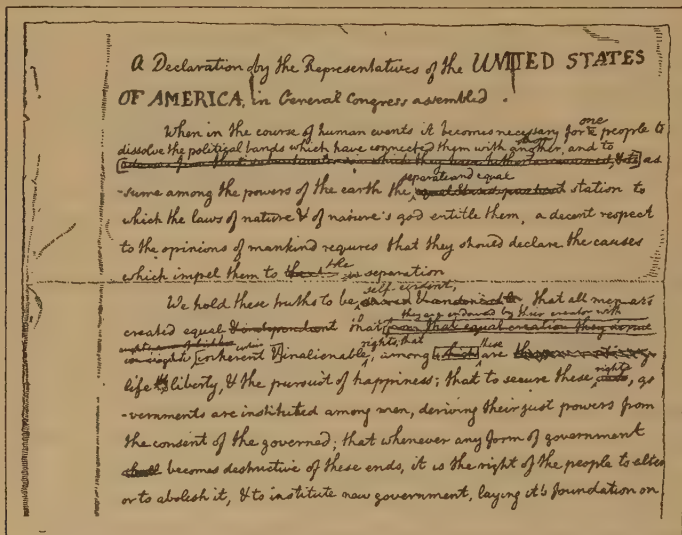 A Declaration by the Representatives of the UNITED STATES
OF AMERICA, in General Congress assembled.
When in the course of human events it becomes necessary for one people to
dissolve the political bands which have connected them with another, and to
as
-sume among the powers of the earth the separate and equal station to
which the laws of nature & of nature's god entitle them, a decent respect
to the opinions of mankind requires that they should declare the causes
which impel them to the separation
We hold these truths to be self-evident, that all men are
created equal & independent that they are endowed by their creator with
from that equal creation they derive
rights, that these
inherent & inalienable, among which are
life liberty, & the pursuit of happiness; that to secure these rights, go
-vernments are instituted among men, deriving their just powers from
the consent of the governed; that whenever any form of government
shall becomes destructive of these ends, it is the right of the people to alter
or to abolish it, & to institute new government, laying it's foundation on